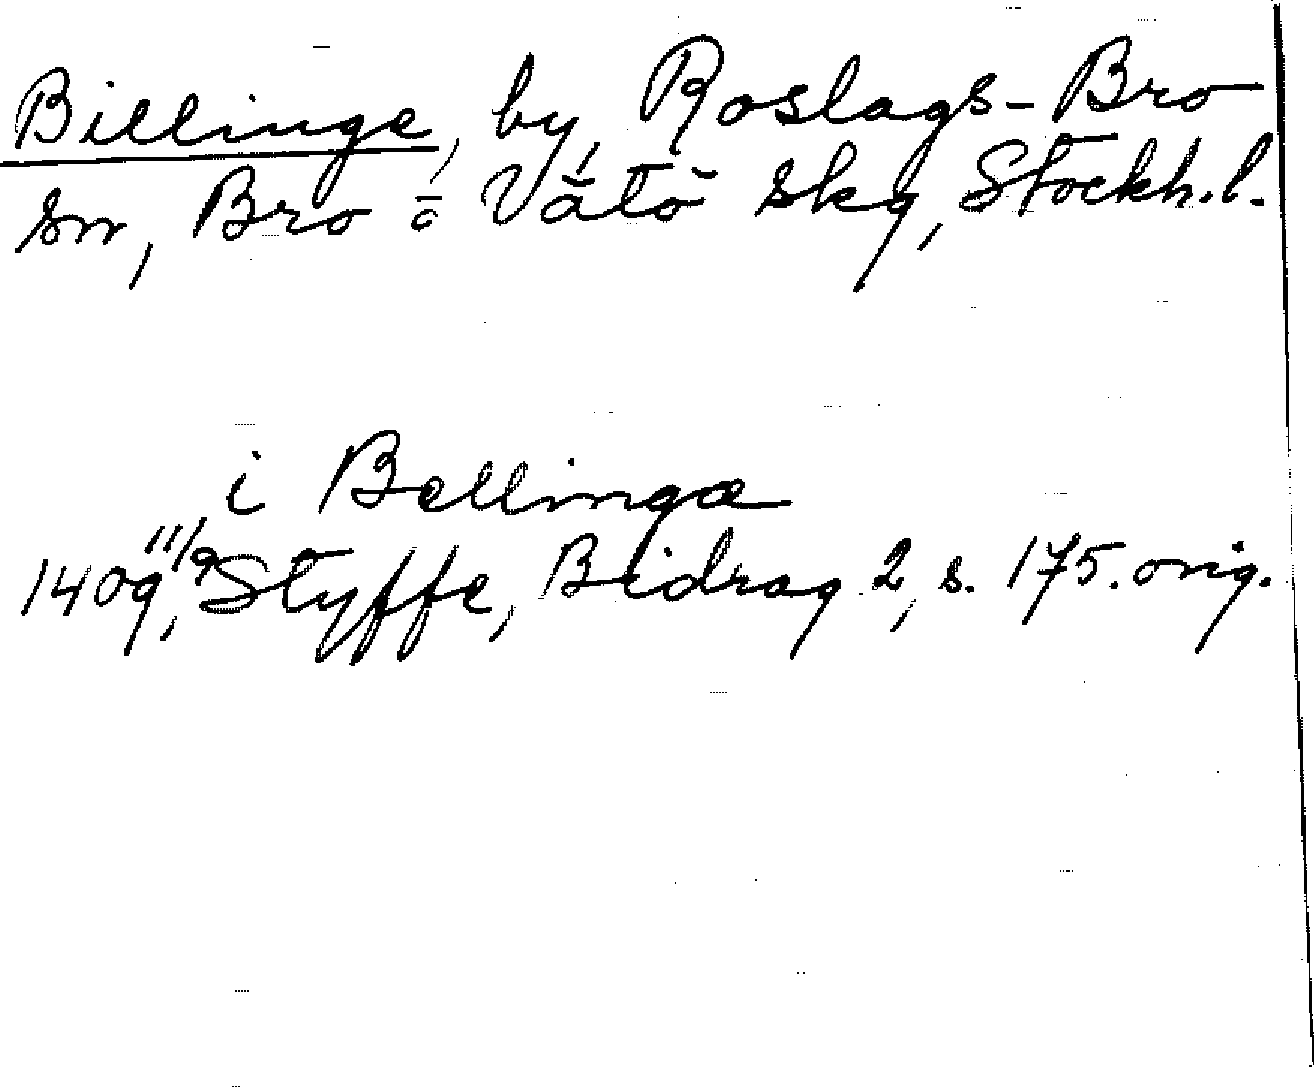 Billinge, by, Roslags-Bro
sn, Bro o Vätö skg, Stockh.l.
i Bellinga
1409 11/9, Styffe, Bidrag 2, s. 175. orig.